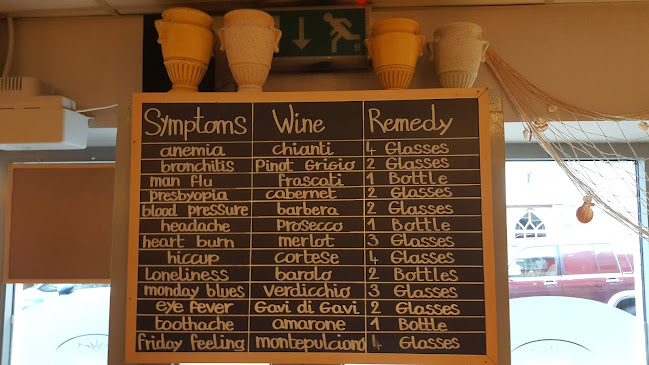 Symptoms Wine Remedy
anemia chianti 4 Glasses
bronchitis Pinot Grigio 2 Glasses
man flu frascati 1 Bottle
presbyopia cabernet 2 Glasses
blood pressure barbera 2 Glasses
headache Prosecco 1 Bottle
heart burn merlot 3 Glasses
hiccup cortese 4 Glasses
loneliness barolo 2 Bottles
monday blues Verdicchio 3 Glasses
eye fever Gavi di Gavi 2 Glasses
toothache amarone 1 Bottle
friday feeling montepulciano 4 Glasses